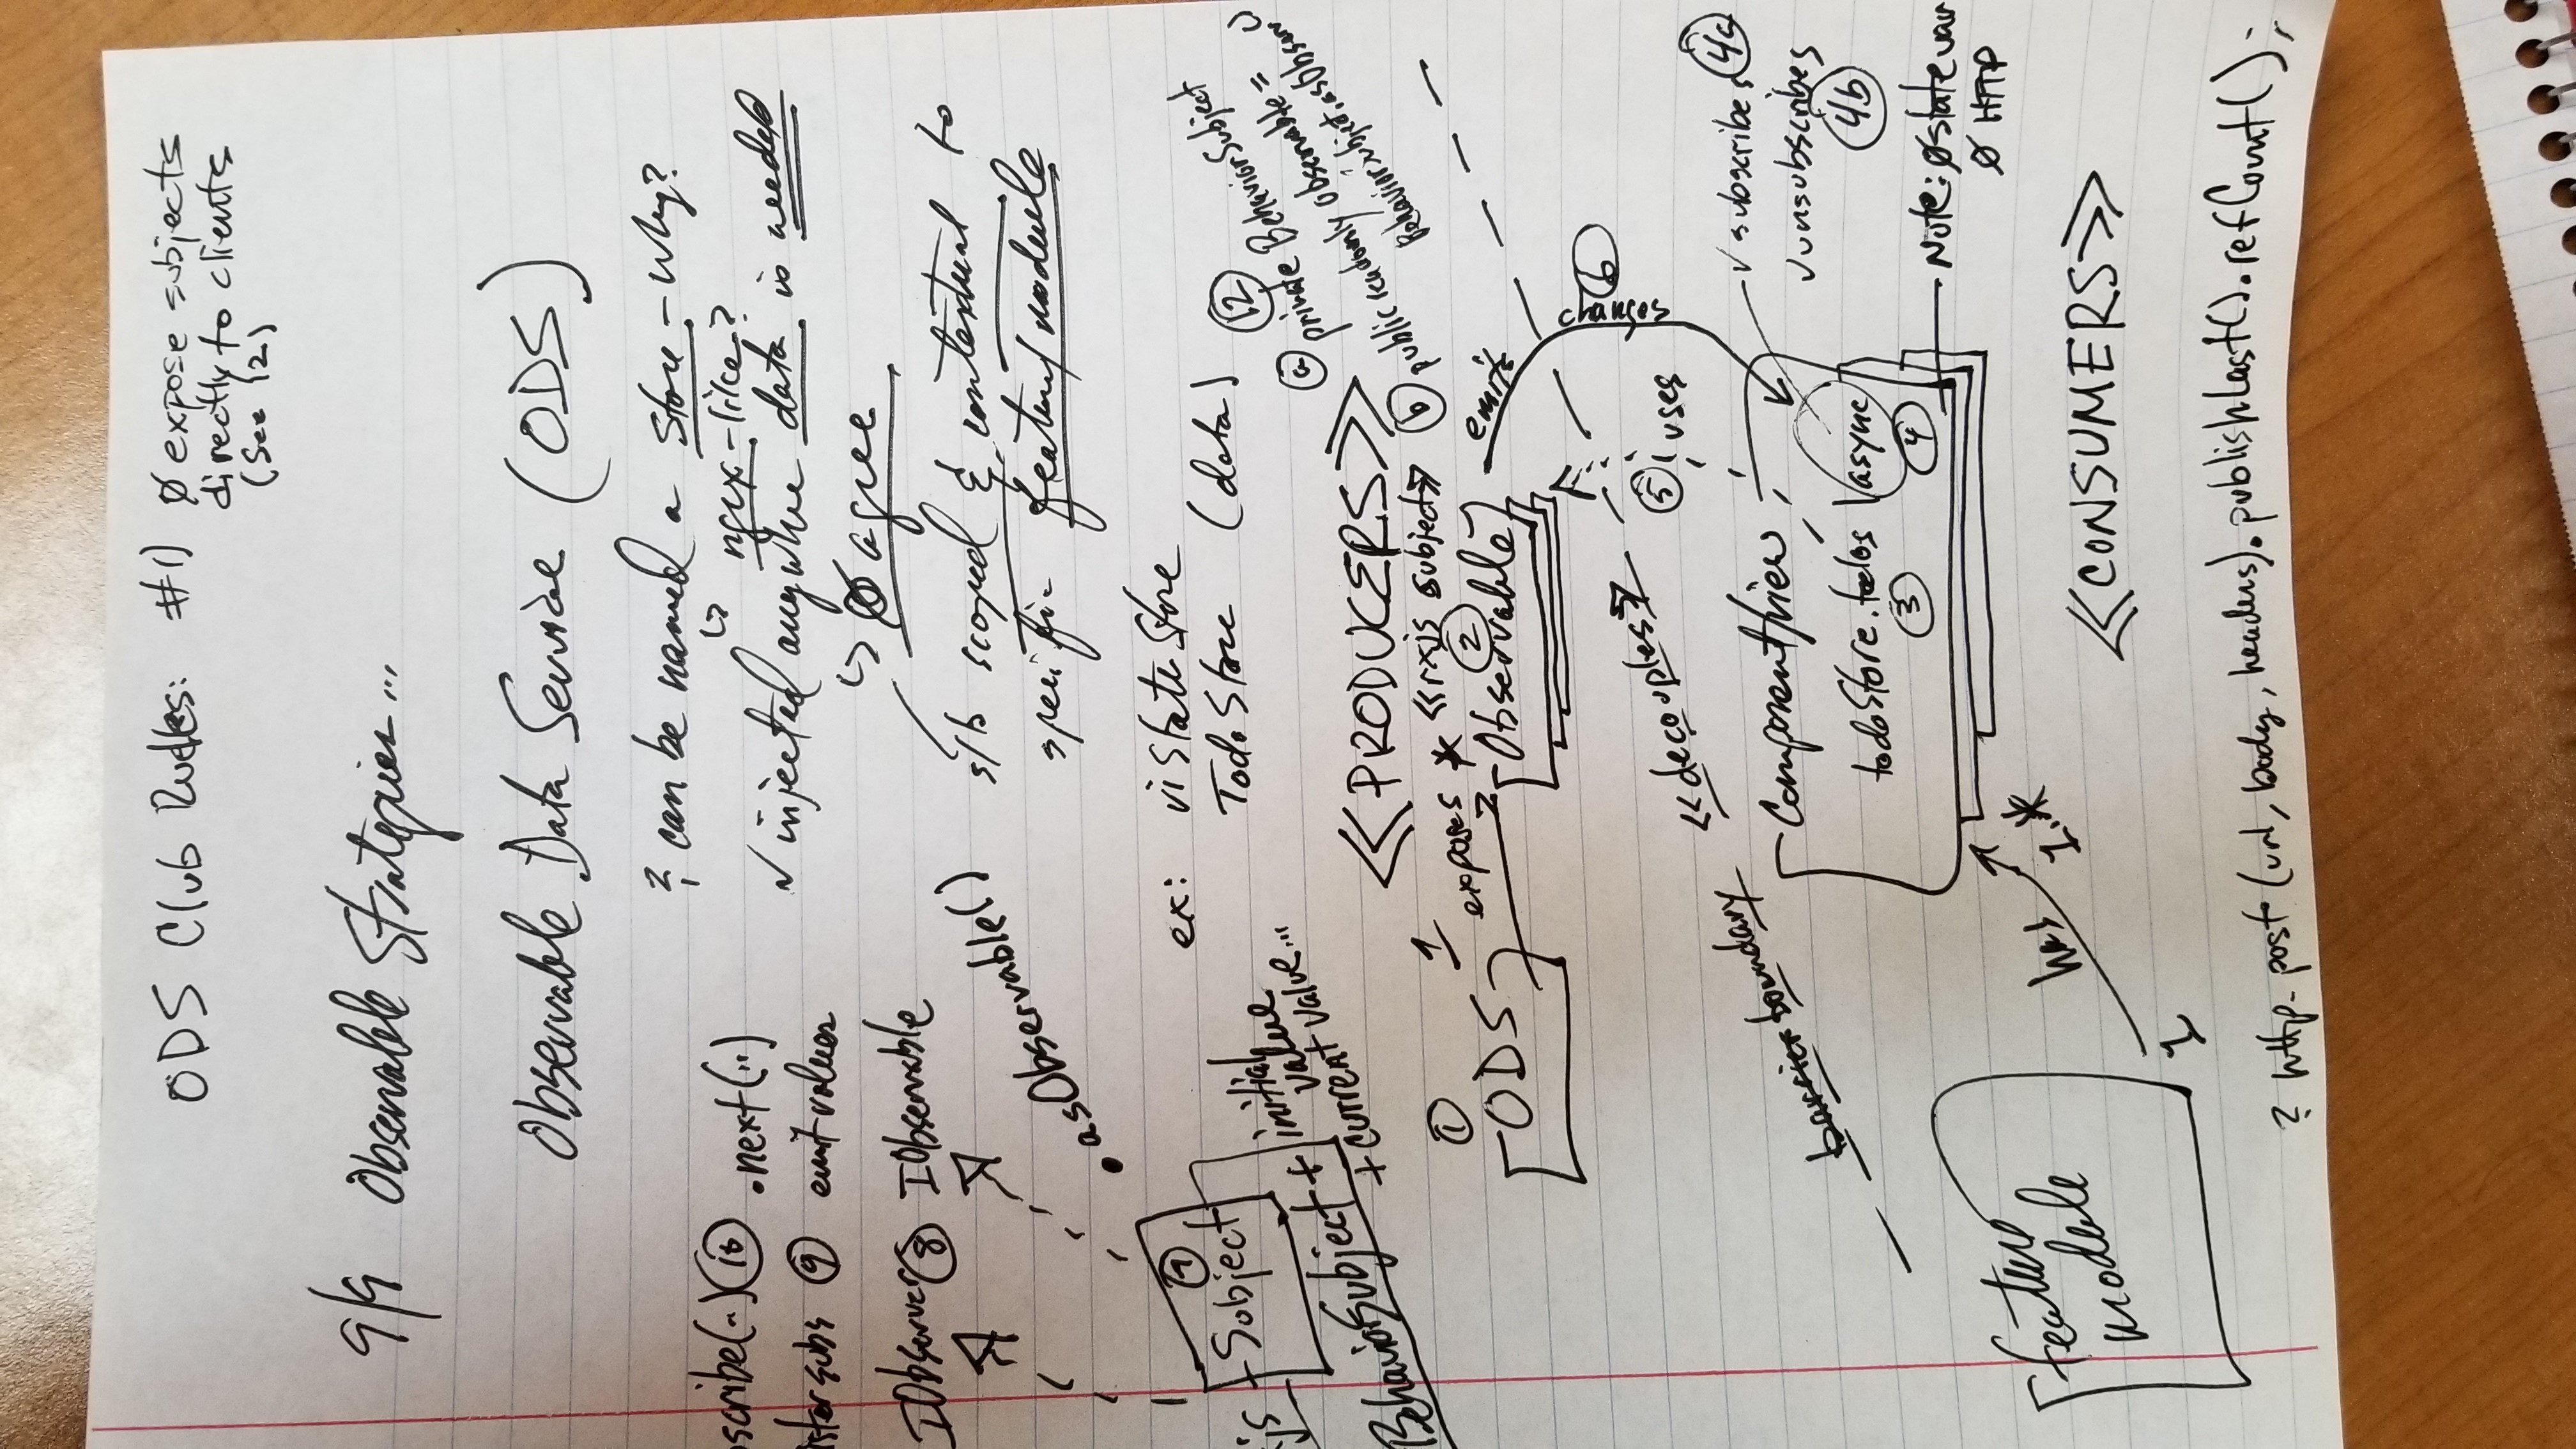 ODS Club Rules: #1) Ø expose subjects
directly to clients
(See 12)
9/9 Observable Strategies...
Observable Data Service (ODS)
? can be named a store - why?
↳ ngrx-like?
✓ injected anywhere data is needed
↳ Ø agree
s/b scoped & contextual to
specific feature/module
ex: uiStateStore
TodoStore (data)
scribe(..) 10 .next(..)
ister subs 9 emit values
IObserver 8 IObservable
.asObservable()
7
Subject
js
BehaviorSubject + initial
value
+ current value...
12
a private BehaviorSubject
b public readonly observable =
BehaviorSubject.asObserv()
<<PRODUCERS>>
1 ODS
1 exposes *
<<rxjs subject>>
2
Observable
emits
changes 6
<<decouples>>
5 uses
barrier boundary
Component/view
todoStore.todos | async
3 4
✓ subscribes 4a
✓ unsubscribes
4b
Note: Ø state var
Ø HTTP
feature
module
1 has 1..*
<<CONSUMERS>>
? http.post(url, body, headers).publishLast().refCount();